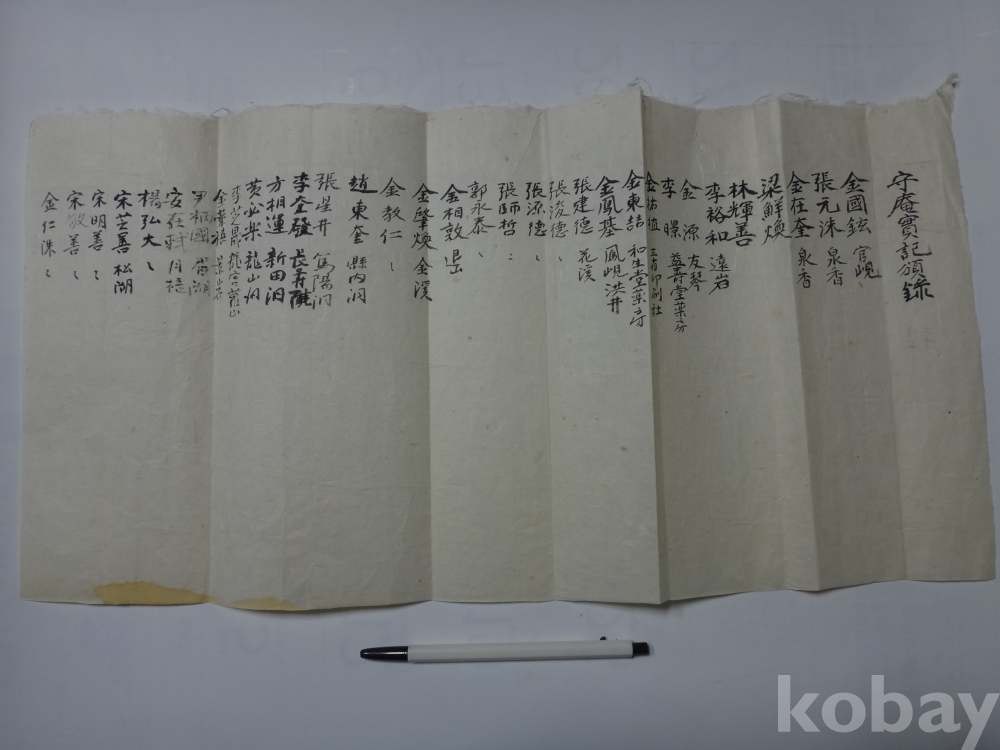 守庵實記頒錄
金國鉉 官峴
張元洙 泉香
金在奎 泉香
梁鮮煥
林輝善
李裕和 遠岩
金源 友琴
李暻 益壽堂藥房
金 植 印刷社
金東喆 和生堂藥房
金鳳基 鳳峴洪井
張建德 花溪
張浚德 〻
張源德 〻
張師哲 〻
郭永泰 〻
金相敦
金肇煥 金溪
金教仁 〻
趙東奎 縣內洞
張 井 陽洞
李奎發 長壽
方相運 新田洞
黃必樂 龍山洞
龍宮 山
國 湖
安在
楊弘大 〻
宋芸善 松湖
宋明善 〻
宋敏善 〻
金仁洙 〻
kobay